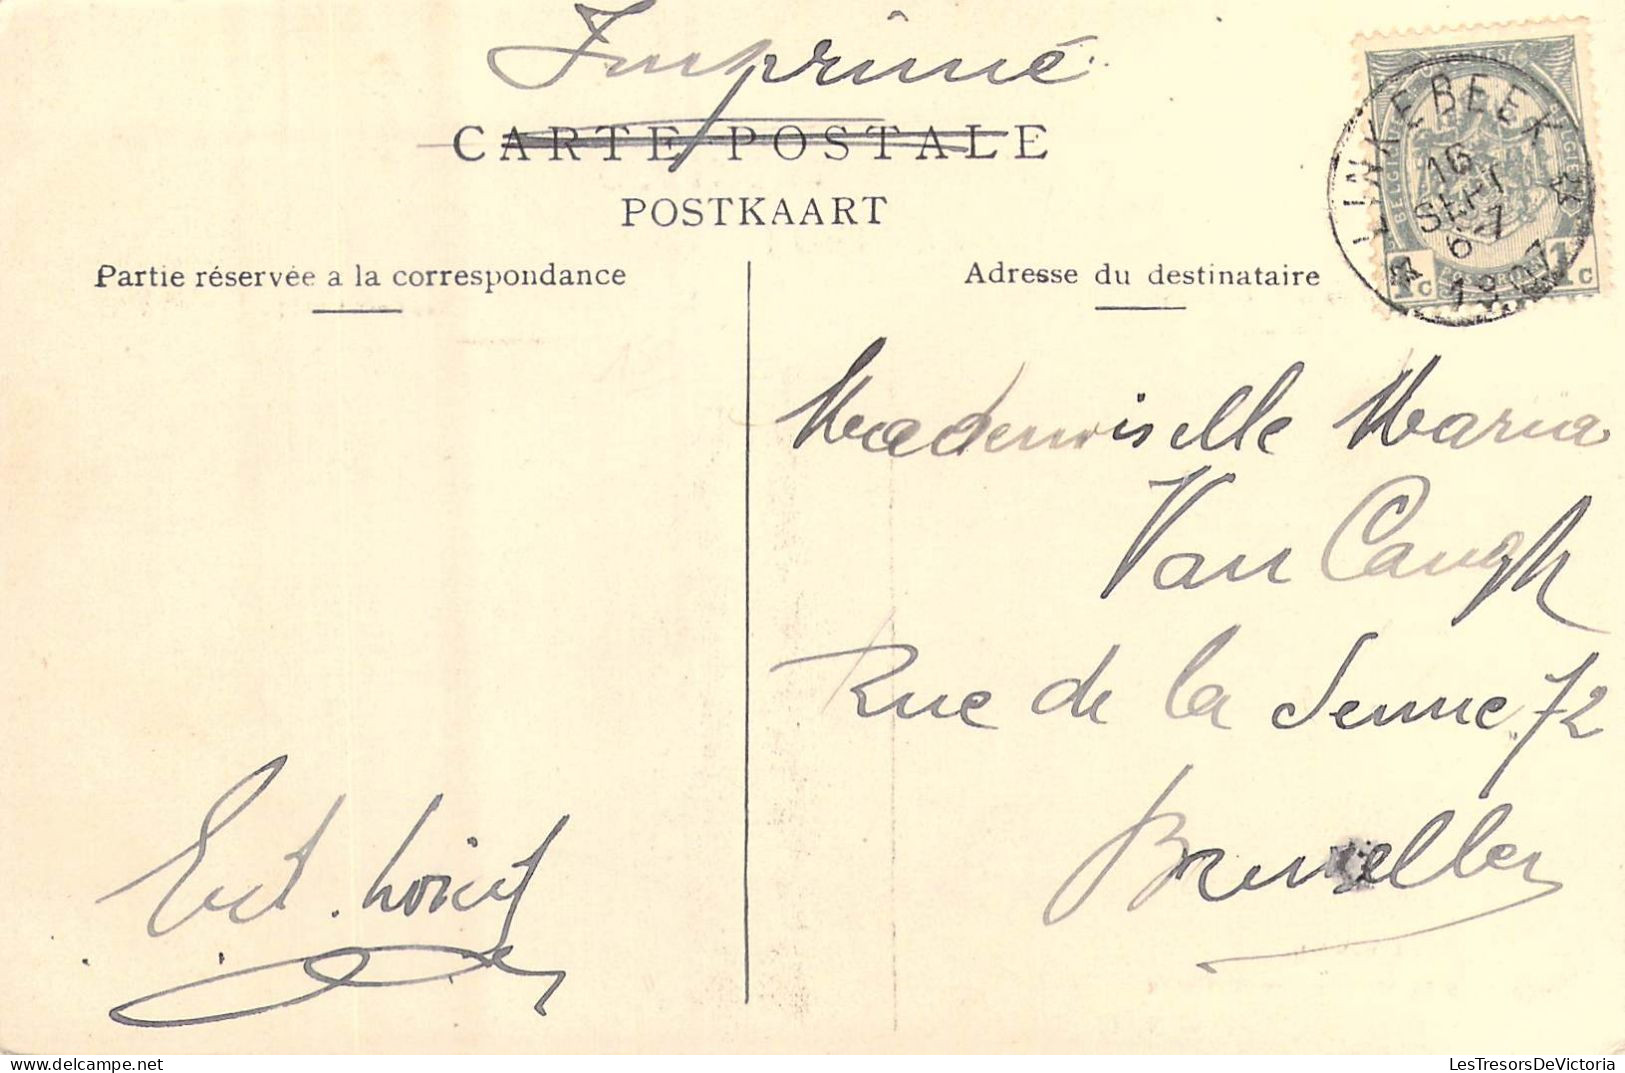 Imprimé
CARTE POSTALE
POSTKAART
Partie réservée a la correspondance
Adresse du destinataire
LINKEBEEK
16
SEPT
6-7
1907
BELGIQUE
1c 1c
Mademoiselle Maria
Van Caugh
Rue de la Senne 72
Bruxelles
LesTresorsDeVictoria